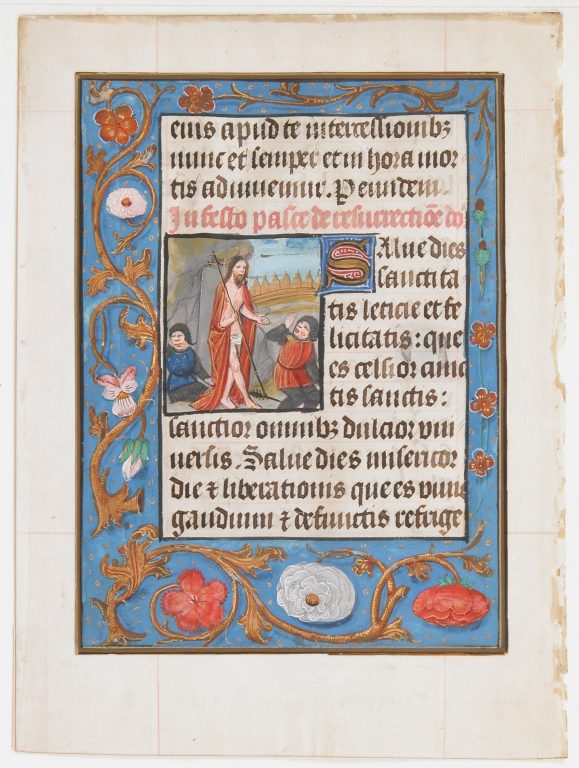 eius apud te intercessionibꝫ
nunc et semper et in hora mor
tis adiuuemur. P eundem
In festo pasce de resurrectiõe dō
Salue dies
sanctita
tis leticie et fe
licitatis: que
es celsior cunc
tis sanctis:
sanctior omnibꝫ dulcior uni
uersis. Salue dies misericor
die ⁊ liberationis que es viuis
gaudium ⁊ defunctis refrige